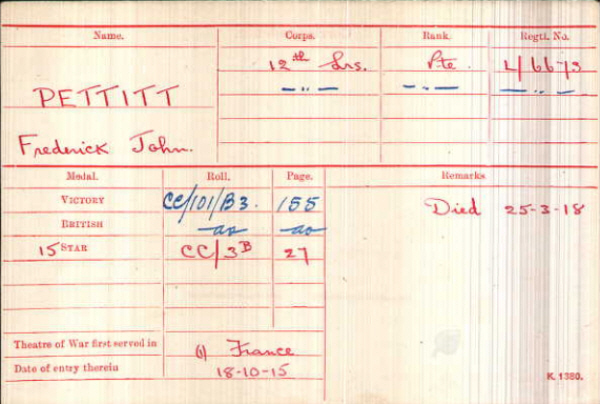 Name. Corps. Rank. Regtl. No.
12th Lrs. Pte. L/6673
PETTITT — " — — " — — " —
Frederick John.
Medal. Roll. Page. Remarks
VICTORY CC/101/B3. 155 Died 25-3-18
BRITISH do do
15 STAR CC/3B 27
Theatre of War first served in (1) France
Date of entry therein 18-10-15
K. 1380.